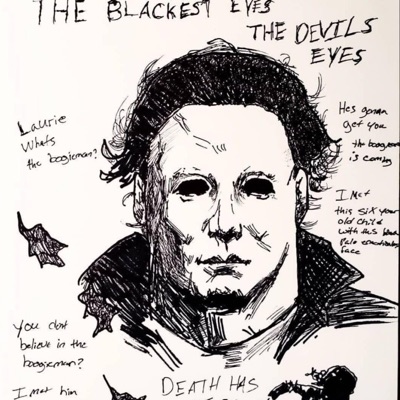 THE BLACKEST EYES
THE DEVILS
EYES
Laurie
Whats
the boogieman?
Hes gonna
get you
the boogieman
is coming
I Met
this six year
old child
with this blank
Pale emotionless
face
You dont
believe in the
boogieman?
I met him
DEATH HAS